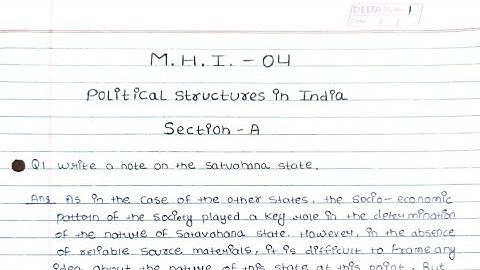 DELTA Pg No. 1
Date / /
M.H.I. - 04
Political structures in India
Section - A
Q1 write a note on the satvahana state.
Ans. As in the case of the other states, the socio-economic
pattern of the society played a key role in the determination
of the nature of Satavahana state. However, in the absence
of reliable source materials, it is difficult to frame any
idea about the nature of this state at this point. But